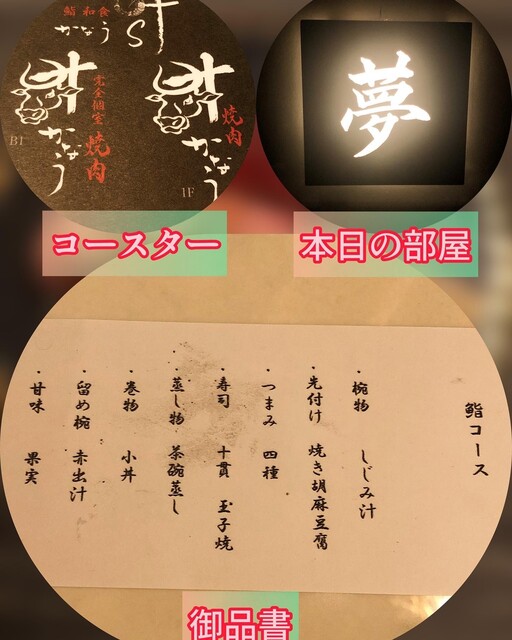 鮨 和食
かなう
叶
完全個室
焼肉
かなう
B1
焼肉
かなう
1F
夢
コースター
本日の部屋
鮨コース
・椀物 しじみ汁
・先付け 焼き胡麻豆腐
・つまみ 四種
・寿司 十貫 玉子焼
・蒸し物 茶碗蒸し
・巻物 小丼
・留め椀 赤出汁
・甘味 果実
御品書